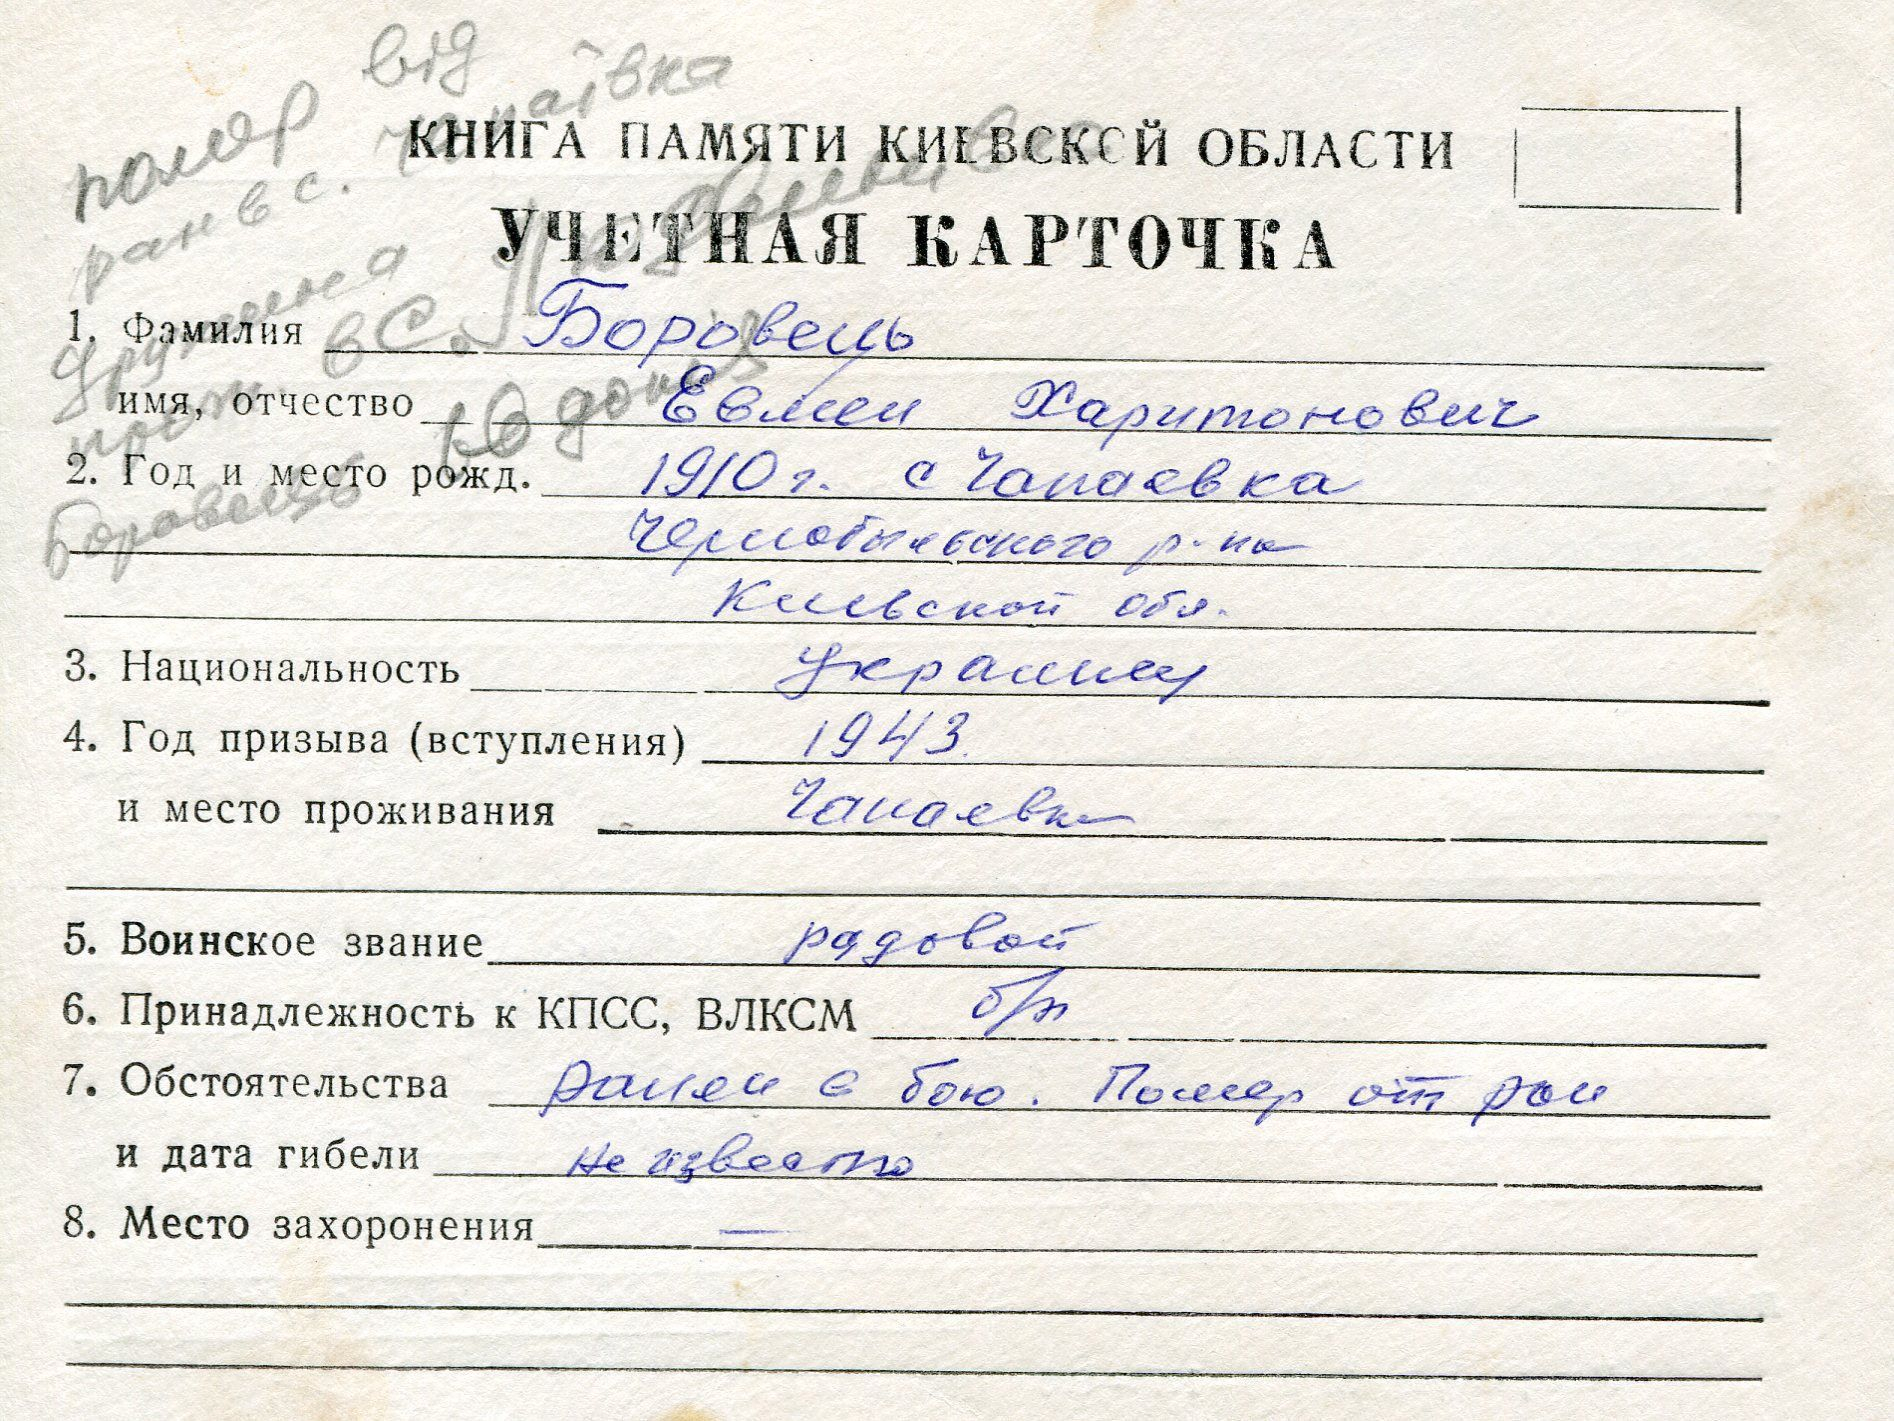 помер від
ран в с. Чапаївка
дружина
прож. в с.
Боровець Євдокія
КНИГА ПАМЯТИ КИЕВСКОЙ ОБЛАСТИ
УЧЕТНАЯ КАРТОЧКА
1. Фамилия Боровець
имя, отчество Евмен Харитонович
2. Год и место рожд. 1910 г. с Чапаевка
Чернобыльского р-на
Киевской обл.
3. Национальность украинец
4. Год призыва (вступления) 1943.
и место проживания Чапаевка
5. Воинское звание рядовой
6. Принадлежность к КПСС, ВЛКСМ б/п
7. Обстоятельства ранен в бою. Помер от ран
и дата гибели не известно
8. Место захоронения —